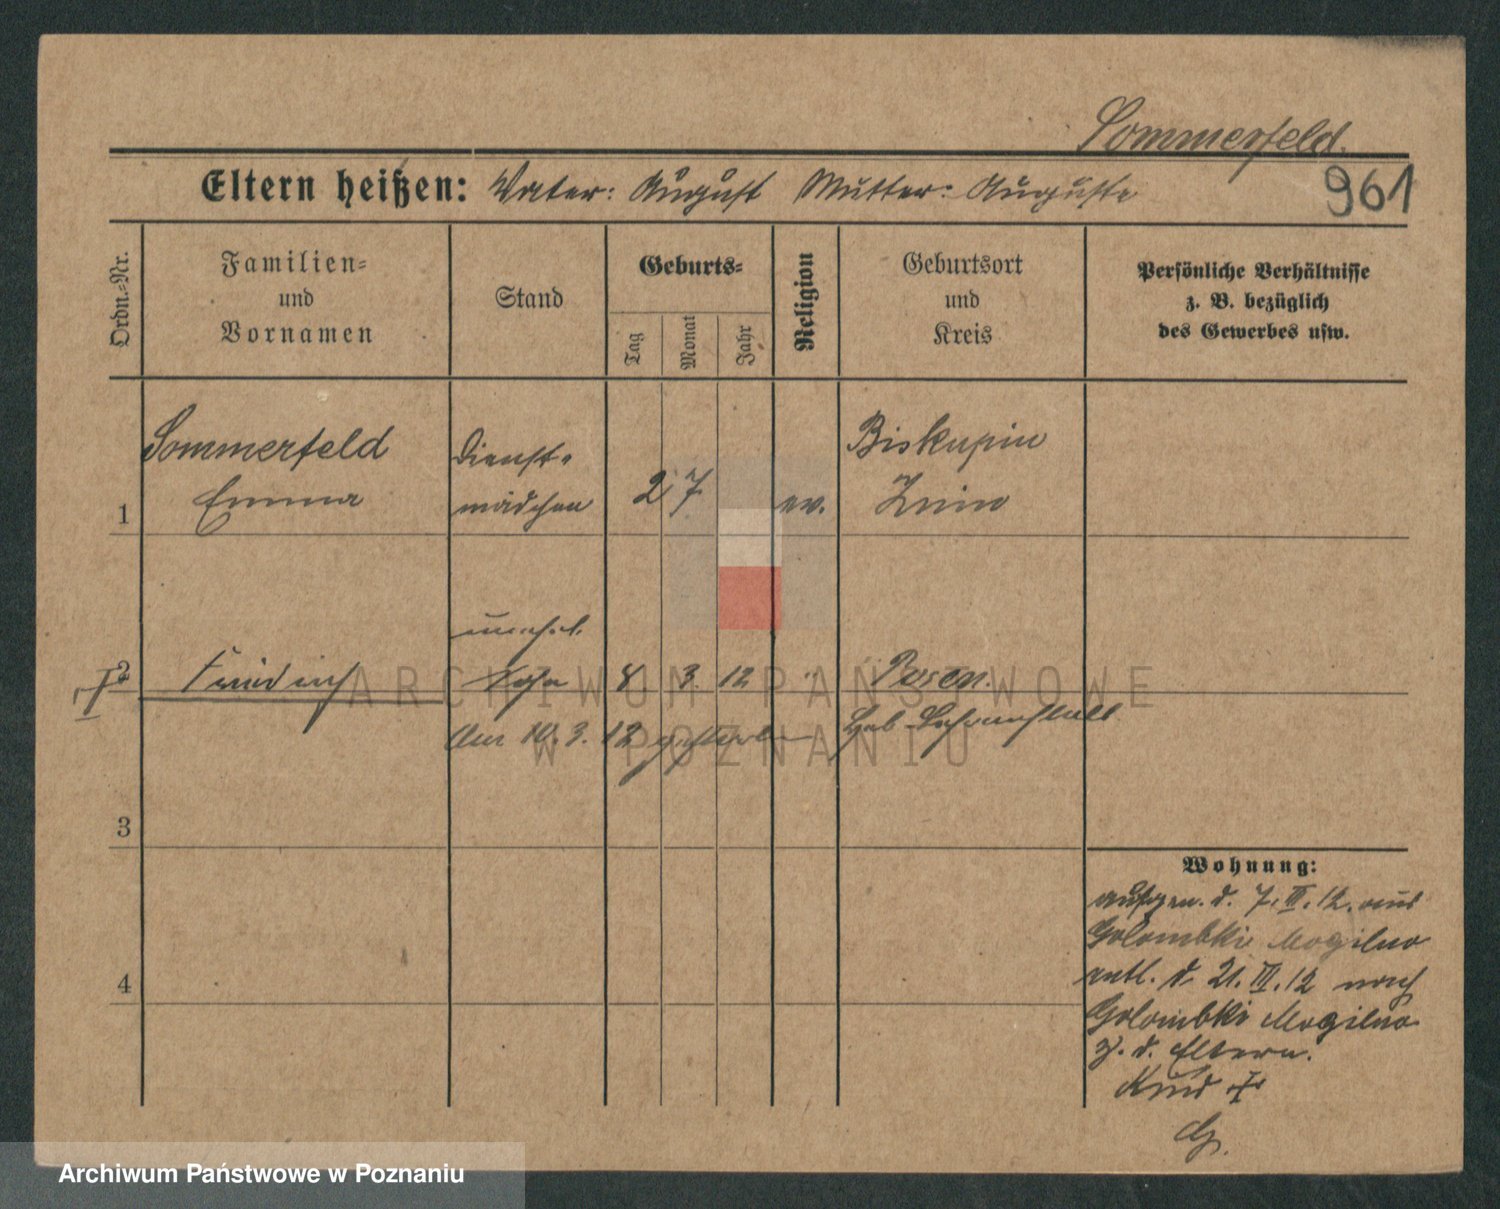 Sommerfeld.
Eltern heißen: Vater: August Mutter: Auguste
961
Ordn.-Nr.
Familien-
und
Vornamen
Stand
Geburts-
Tag
Monat
Jahr
Religion
Geburtsort
und
Kreis
Persönliche Verhältnisse
z. B. bezüglich
des Gewerbes usw.
Sommerfeld
Dienst-
Biskupin
1
Emma
mädchen
2 7
ev.
Znin
unehel.
2
Friedrich
Sohn
8 3. 12
"
Posen.
Am 10. 3. 12 gestorben
Heb. Lehranstalt
3
4
Wohnung:
aufgen. d. 7. III. 12. aus
Golombki Mogilno
entl. d. 21. III. 12 nach
Golombki Mogilno
z. d. Eltern.
Kind †
ARCHIWUM PAŃSTWOWE
W POZNANIU
Archiwum Państwowe w Poznaniu